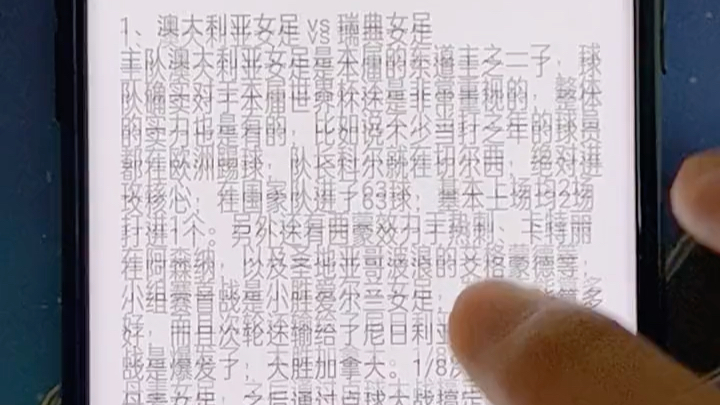 1、澳大利亚女足 vs 瑞典女足
主队澳大利亚女足是本届的东道主之一了，球
队确实对于本届世界杯还是非常重视的，整体
的实力也是有的，比如说不少当打之年的球员
都在欧洲踢球，队长科尔就在切尔西，绝对进
攻核心，在国家队进了63球，基本上场均2场
打进1个。另外还有西蒙效力于热刺、卡特丽
在阿森纳，以及圣地亚哥波浪的艾格蒙德等，
小组赛首战是小胜爱尔兰女足，多
好，而且次轮还输给了尼日利亚
战是爆发了，大胜加拿大。1/8决
丹麦女足，之后通过点球大战搞定